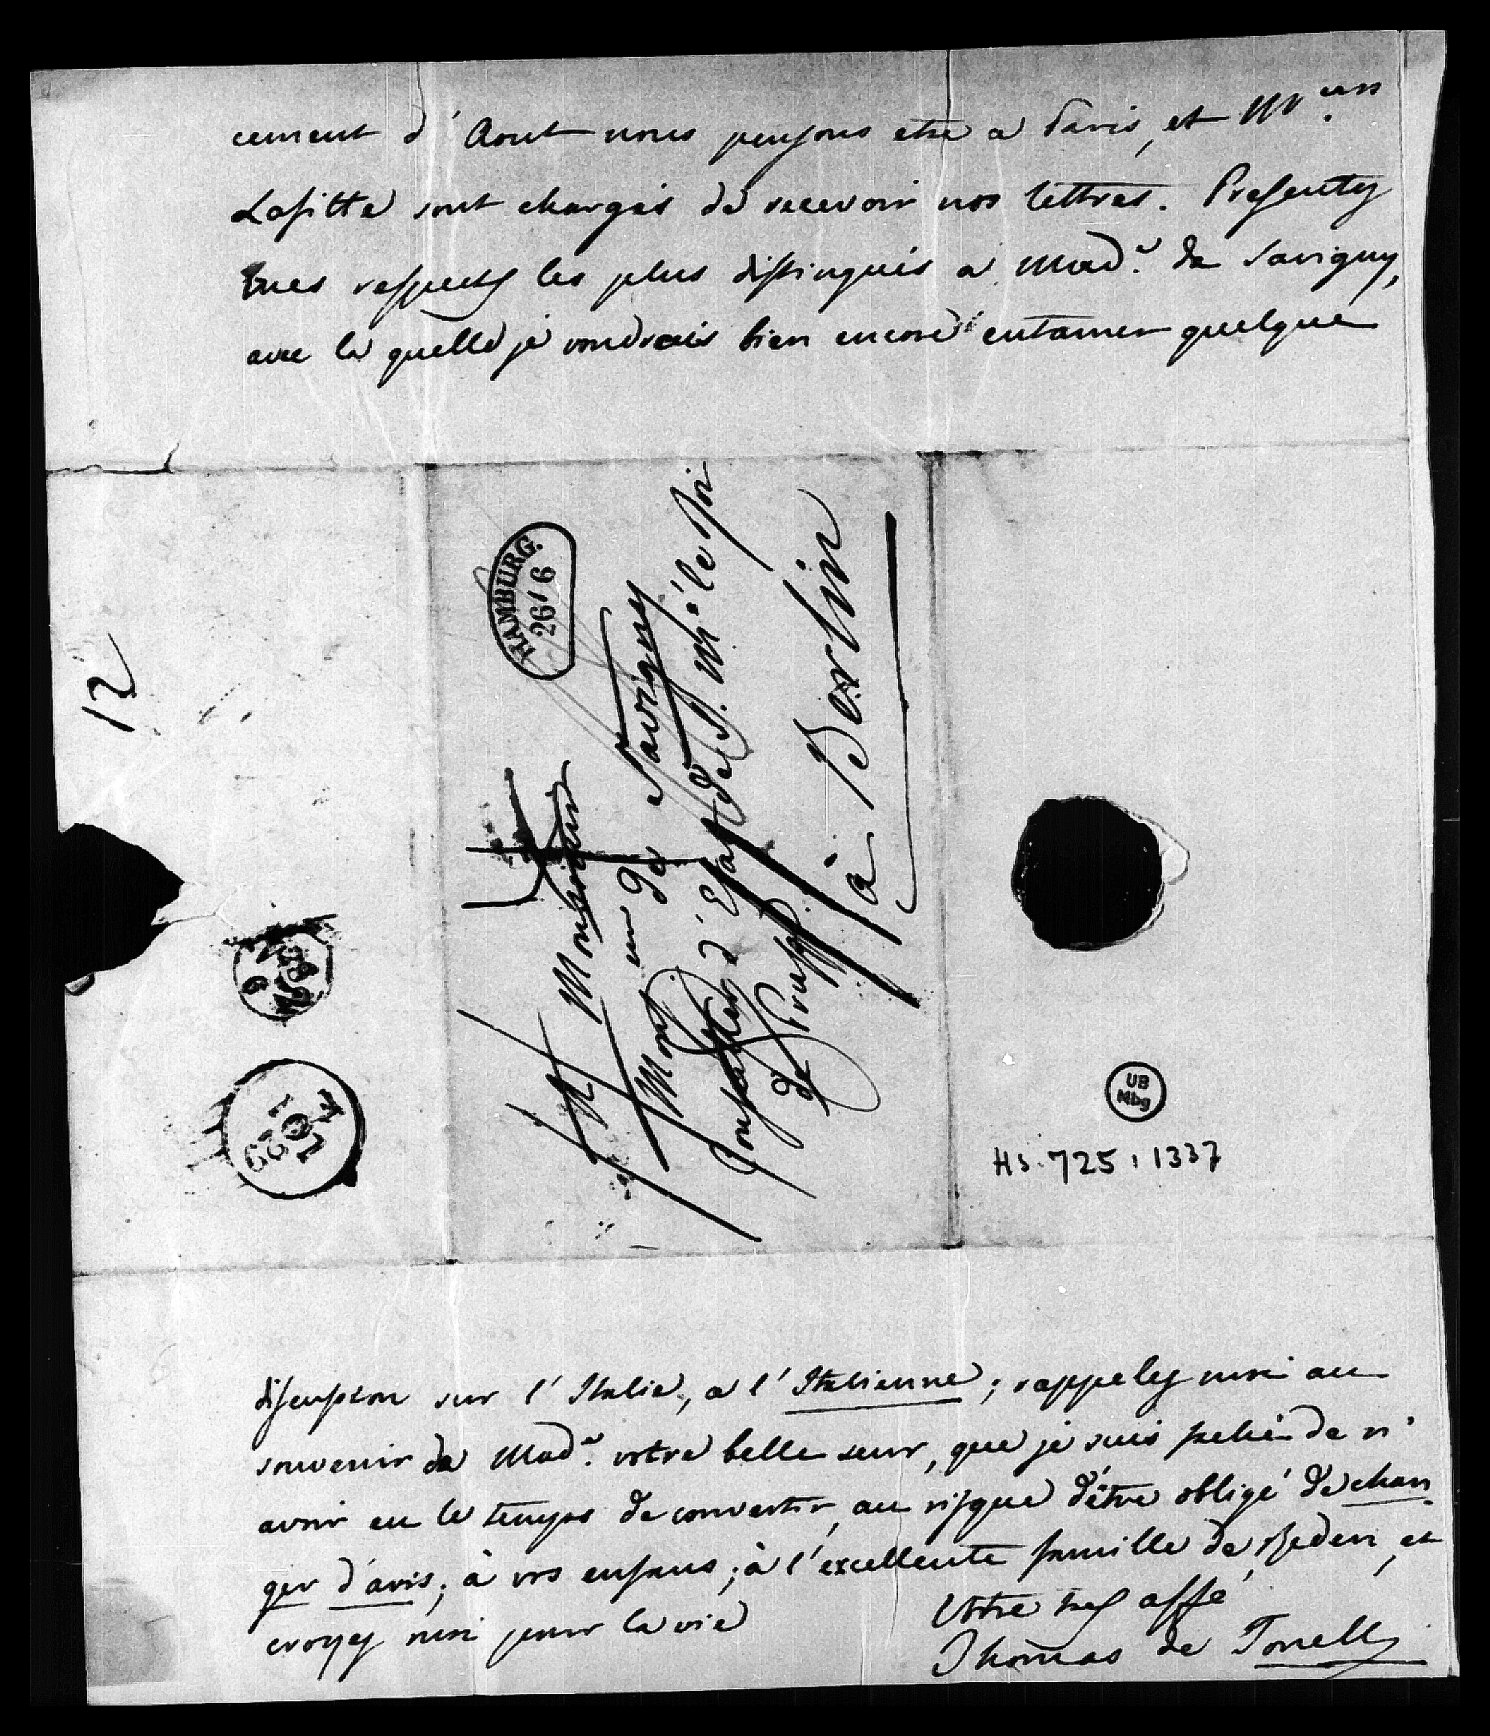 cement d'Aout nous pensons etre a Paris, et Mrs.
Lafitte sont chargés de recevoir nos lettres. Presentez
mes respects les plus distingués a Made. de Savigny,
avec la quelle je voudrais bien encore entamer quelque
HAMBURG.
26/6
A Monsieur
Monsr. de Savigny
Conseiller d'Etat de S. Mé. le Roi
de Prusse
à Berlin
12
UB
Mbg
Hs. 725, 1337
discussion sur l'Italie, a l'Italienne; rappelez moi au
souvenir de Made. votre belle seur, que je suis faché de n'
avoir eu le temps de convertir, au risque d'être obligé de chan
ger d'avis; à vos enfans; à l'excellente famille de Reden, et
croyez moi pour la vie
Votre tres affé
Thomas de Tonelli